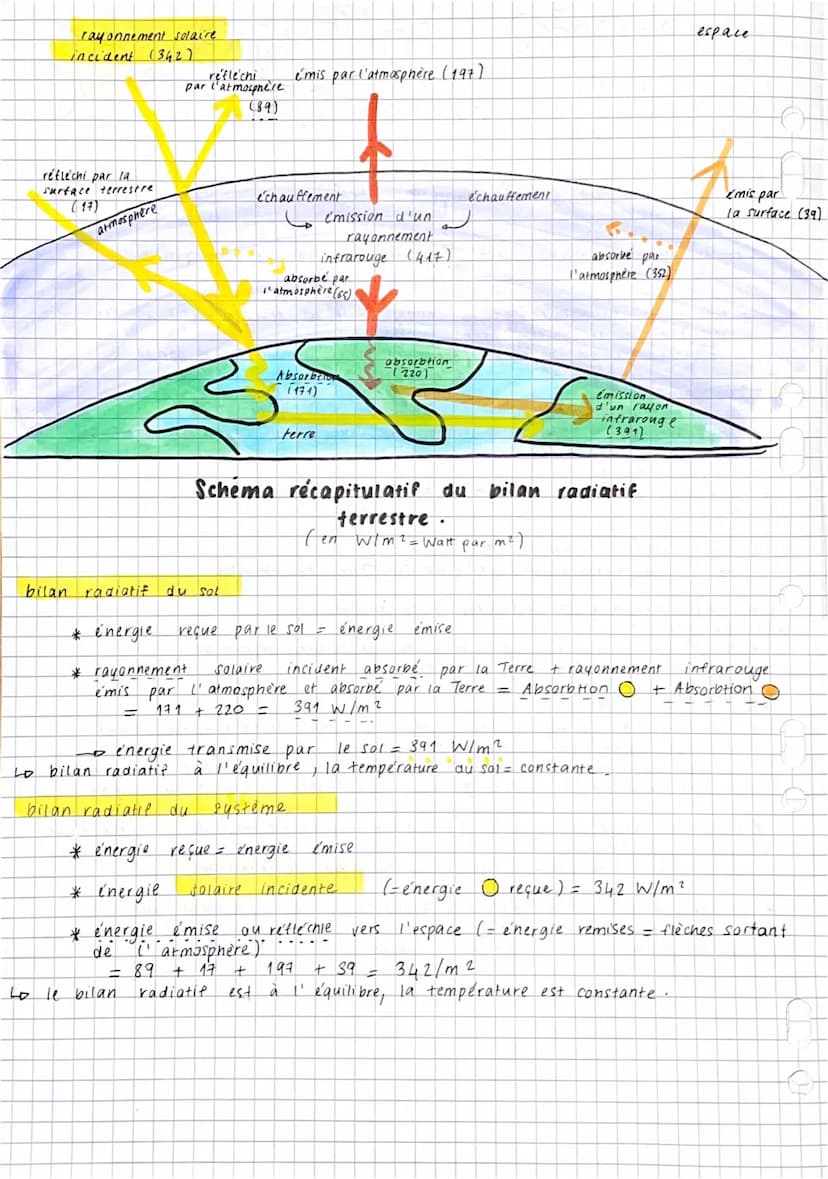 rayonnement solaire
incident (342)
espace
réfléchi
par l'atmosphère
(89)
émis par l'atmosphère (197)
réfléchi par la
surface terrestre
(17)
atmosphère
échauffement
échauffement
émission d'un
rayonnement
infrarouge (417)
émis par
la surface (39)
absorbé par
l'atmosphère (352)
absorbé par
l'atmosphère (65)
Absorbtion
(171)
absorbtion
(220)
émission
d'un rayon
infrarouge
(391)
terre
Schéma récapitulatif du bilan radiatif
terrestre.
(en W/m² = Watt par m²)
bilan radiatif du sol
* énergie reçue par le sol = énergie émise
* rayonnement solaire incident absorbé par la Terre + rayonnement infrarouge
émis par l'atmosphère et absorbé par la Terre = Absorbtion + Absorbtion
= 171 + 220 = 391 W/m²
→ énergie transmise par le sol = 391 W/m²
↳ bilan radiatif à l'équilibre, la température du sol = constante.
bilan radiatif du système
* énergie reçue = énergie émise
* énergie solaire incidente (= énergie reçue) = 342 W/m²
* énergie émise ou réfléchie vers l'espace (= énergie remises = flèches sortant
de l'atmosphère)
= 89 + 17 + 197 + 39 = 342/m²
↳ le bilan radiatif est à l'équilibre, la température est constante.